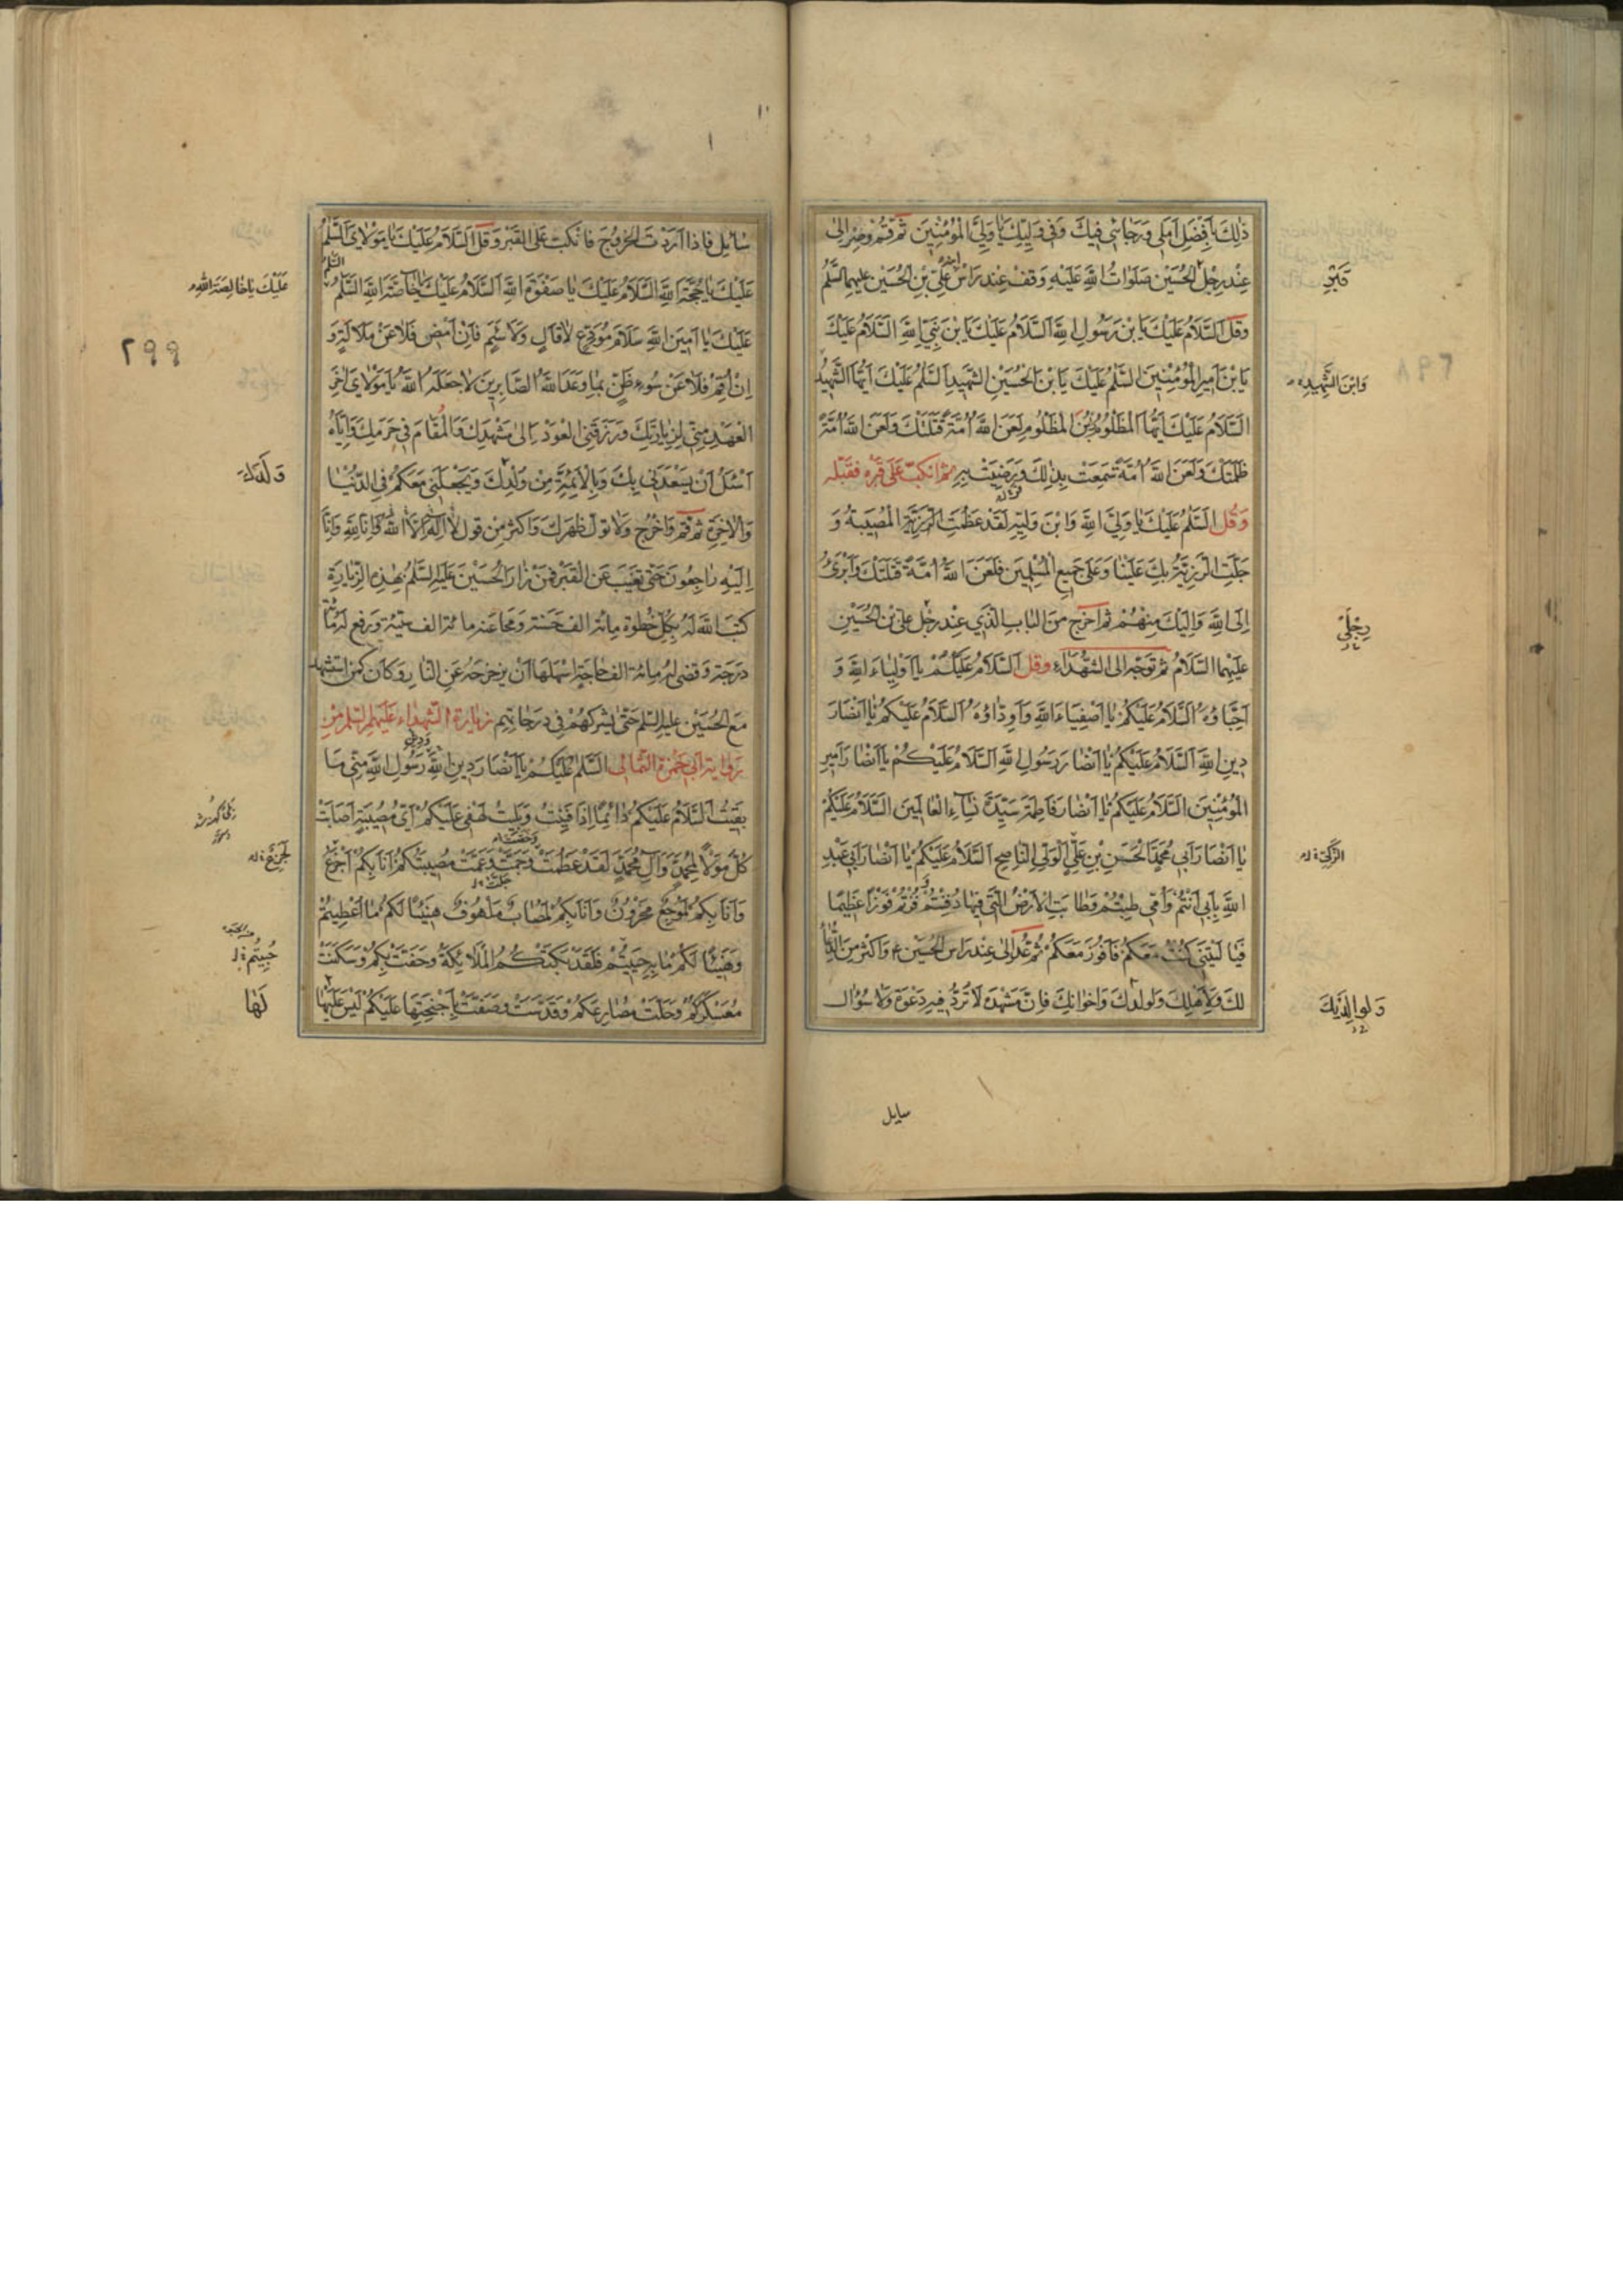 ذٰلِكَ اَفْضَلَ اَمَلي وَرَجائي فيكَ وَفي وَلِيِّكَ يا وَلِيَّ الْمُؤْمِنينَ ثم قم وصر الى
عِنْد رِجْل الحُسَيْن صَلَواتُ اللهِ عَلَيْهِ وَقِفْ عِند رَاس عَلِيّ بْنِ الحُسَيْن عليهما السَّلمُ
قَبْرِ
وقل اَلسَّلامُ عَلَيْكَ يَا بْنَ رَسُولِ اللهِ اَلسَّلامُ عَلَيْكَ يَا بْنَ نَبِيِّ اللهِ اَلسَّلامُ عَلَيْكَ
يَا بْنَ اَميرِ الْمُؤْمِنينَ السَّلمُ عَلَيْكَ يَا بْنَ الْحُسَيْنِ الشَّهيدِ السَّلمُ عَلَيْكَ اَيُّهَا الشَّهيدُ
وَابْنَ الشَّهيدِ
اَلسَّلامُ عَلَيْكَ اَيُّهَا الْمَظْلُومُ بْنُ الْمَظْلُومِ لَعَنَ اللهُ اُمَّةً قَتَلَتْكَ وَلَعَنَ اللهُ اُمَّةً
ظَلَمَتْكَ وَلَعَنَ اللهُ اُمَّةً سَمِعَتْ بِذٰلِكَ وَرَضِيَتْ بِهِ ثم انكبّ عَلى قبره فقبّله
وَقُل السَّلمُ عَلَيْكَ يا وَلِيَّ اللهِ وَابْنَ وَلِيِّهِ لَقَدْ عَظُمَتِ الرَّزِيَّةُ الْمُصيبَةُ وَ
جَلَّتِ الرَّزِيَّةُ بِكَ عَلَيْنا وَعَلى جَميعِ الْمُسْلِمينَ فَلَعَنَ اللهُ اُمَّةً قَتَلَتْكَ وَاَبْرَئُ
اِلَى اللهِ وَاِلَيْكَ مِنْهُمْ ثم اخرج من الباب الّذي عِنْد رِجْل علىّ بْن الحُسَيْنِ
رِجْلَيْ
عليهما السَّلامُ ثم توجّه الى الشّهداء وقل اَلسَّلامُ عَلَيْكُمْ يا اَوْلِياءَ اللهِ وَ
اَحِبّاؤُهُ اَلسَّلامُ عَلَيْكُمْ يا اَصْفِياءَ اللهِ وَاَوِدّاؤُهُ اَلسَّلامُ عَلَيْكُمْ يا اَنْصارَ
دينِ اللهِ اَلسَّلامُ عَلَيْكُمْ يا اَنْصارَ رَسُولِ اللهِ اَلسَّلامُ عَلَيْكُمْ يا اَنْصارَ اَميرِ
الْمُؤْمِنينَ السَّلامُ عَلَيْكُمْ يا اَنْصارَ فاطِمَةَ سَيِّدَةِ نِساءِ الْعالَمينَ السَّلامُ عَلَيْكُمْ
يا اَنْصارَ اَبي مُحَمَّدٍ الْحَسَنِ بْنِ عَلِيٍّ الْوَلِيِّ النّاصِحِ السَّلامُ عَلَيْكُمْ يا اَنْصارَ اَبي عَبْدِ
الزَّكِيِّ
اللهِ بِاَبي اَنْتُمْ وَاُمّي طِبْتُمْ وَطابَتِ الْاَرْضُ الَّتي فيها دُفِنْتُمْ وَفُزْتُمْ فَوْزًا عَظيمًا
فَيا لَيْتَني كُنْتُ مَعَكُمْ فَاَفُوزَ مَعَكُمْ ثم عُد الى عِنْد راس الحُسَيْن ع وَاكثر مِنَ الدُّعاء
لك وَلِاَهْلِكَ وَلولدك وَاخوانك فَاِنَّ مَشْهَدَهُ لا تردّ فيهِ دَعْوَة وَلا سُؤال
وَلوالِدَيْكَ
سايل
سٰايل فَاذا اَرَدْتَ الخروج فانكبّ على القبر وَقل السَّلامُ عَلَيْكَ يا مَوْلايَ السَّلمُ
عَلَيْكَ يا حُجَّةَ اللهِ السَّلامُ عَلَيْكَ يا صَفْوَةَ اللهِ اَلسَّلامُ عَلَيْكَ يا خاصَّةَ اللهِ السَّلمُ
عَلَيْكَ يا خالِصَةَ اللهِ
عَلَيْكَ يا اَمينَ اللهِ سَلامَ مُوَدِّعٍ لا قالٍ وَلا سَئِمٍ فَاِنْ اَمْضِ فَلا عَنْ مَلالَةٍ وَ
٢٩٩
اِنْ اُقِمْ فَلا عَنْ سُوءِ ظَنٍّ بِما وَعَدَ اللهُ الصّابِرينَ لا جَعَلَهُ اللهُ يا مَوْلايَ اخِرَ
الْعَهْدِ مِنّي لِزِيارَتِكَ وَرَزَقَنِي الْعَوْدَ اِلى مَشْهَدِكَ وَالْمُقامَ في حَرَمِكَ وَاِيّاهُ
اَسْئَلُ اَنْ يُسْعِدَني بِكَ وَبِالْاَئِمَّةِ مِنْ وَلَدِكَ وَيَجْعَلَني مَعَكُمْ فِي الدُّنْيا
وَلَدِكَ
وَالْاخِرَةِ ثم قم وَاخْرُج وَلا تولّ ظهرك وَاكثر مِنْ قول لا اِلٰهَ اِلَّا اللهُ اِنّا للهِ وَاِنّا
اِلَيْهِ راجِعُونَ حَتّى تغيبَ عَن القبر فَمَنْ زارَ الحُسَيْنَ عَلَيْهِ السَّلمُ بِهٰذِهِ الزِّيارَةِ
كتبَ الله لَهُ بِكُلّ خُطْوَة مِائة الف حَسَنة وَمَحا عَنه مائة الف سَيّئة وَرفع له مائة
دَرَجة وَقضى له مِائة الف حاجَة اَسْهَلها اَنْ يزحزحه عَنِ النّار وَكانَ كمن استشهد
مَعَ الحُسَيْن عليه السّلم حَتّى يشركهمْ في دَرَجاتهم زيارة الشّهداء عَلَيْهِم السّلم مِنْ
رواية ابي حَمْزة الثّمالى السَّلمُ عَلَيْكُمْ يا اَنْصارَ دينِ اللهِ رَسُولِ اللهِ مِنّي ما
بَقيتُ السَّلامُ عَلَيْكُمْ دائِمًا اِذا فَنيتُ وَبَليتُ لَهْفي عَلَيْكُمْ اَيُّ مُصيبَةٍ اَصابَتْ
كُلَّ مَوْلًى لِمُحَمَّدٍ وَآلِ مُحَمَّدٍ لَقَدْ عَظُمَتْ وَعَمَّتْ مُصيبَتُكُمْ اَنَا بِكُمْ اَجْزَعُ
لَجَزِعٌ
وَاَنَا بِكُمْ لَمُوجَعٌ مَحْزُونٌ وَاَنَا بِكُمْ لَمُصابٌ مَلْهُوفٌ هَنيئًا لَكُمْ ما اُعْطيتُمْ
وَهَنيئًا لَكُمْ ما بِهِ حُيّيتُمْ فَلَقَدْ بَكَتْكُمُ الْمَلائِكَةُ وَحَفَّتْ بِكُمْ وَسَكَنَتْ
مُعَسْكَرَكُمْ وَحَلَّتْ مَصارِعَكُمْ وَقَدَّسَتْ وَصَفَّتْ بِاَجْنِحَتِها عَلَيْكُمْ لَيْسَ عَلَيْها
لَها